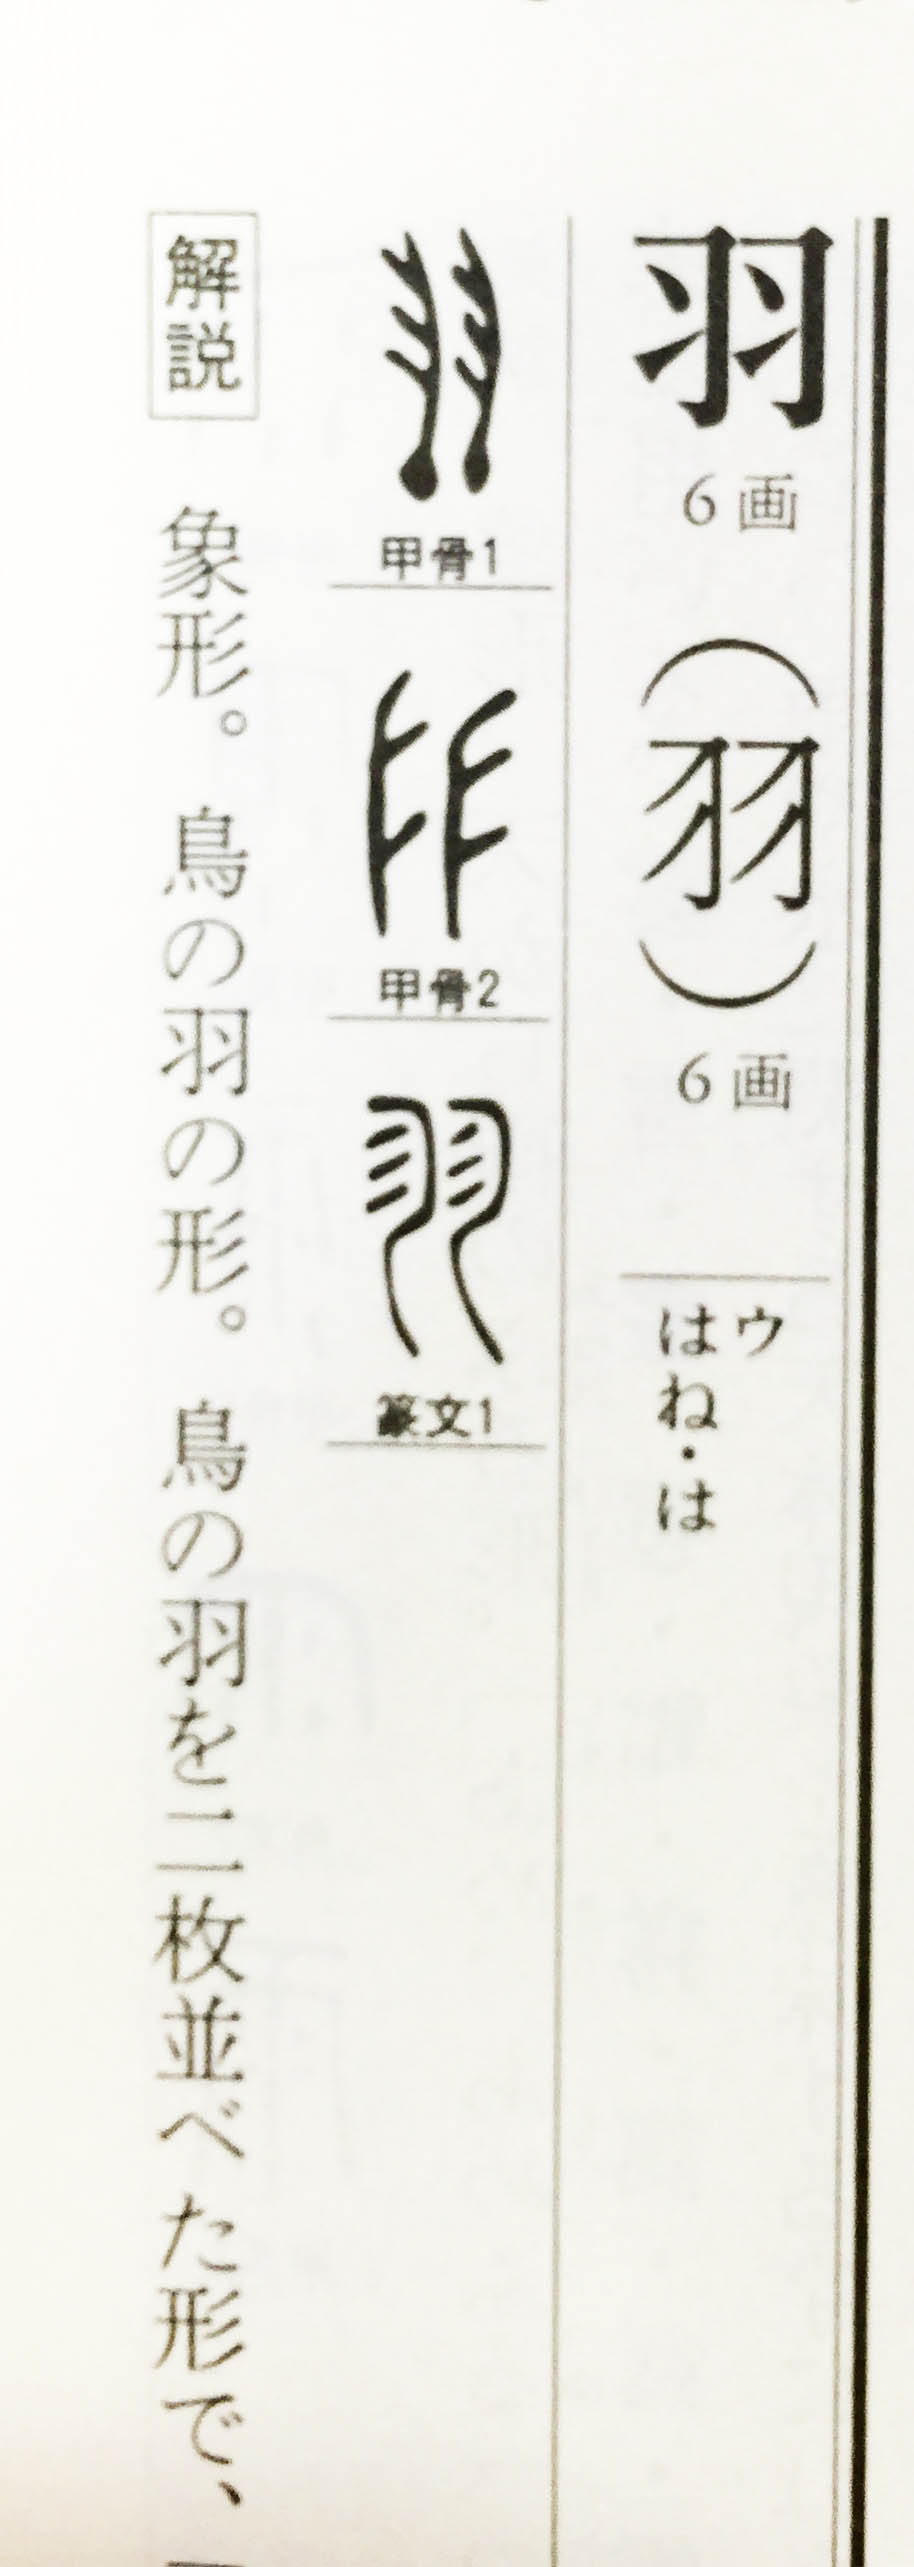 羽 6画 (羽) 6画
ウ
はね・は
甲骨1
甲骨2
篆文1
解説 象形。鳥の羽の形。鳥の羽を二枚並べた形で、